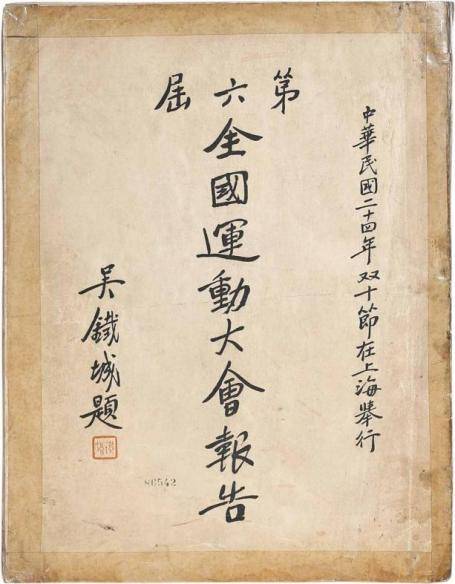 中華民國二十四年双十節在上海舉行
第六屆
全國運動大會報告
吳鐵城題
86542